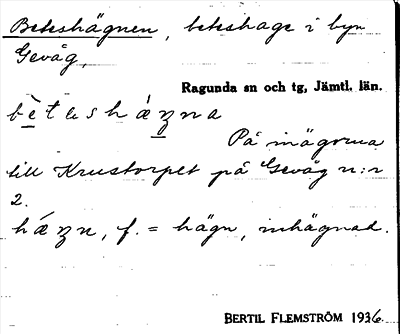 Beteshägnen, beteshage i byn
Gevåg,
Ragunda sn och tg, Jämtl. län.
bètesházna
På inägorna
till Krustorpet på Gevåg n:r
2.
házn, f. = hägn, inhägnad.
BERTIL FLEMSTRÖM 1936.